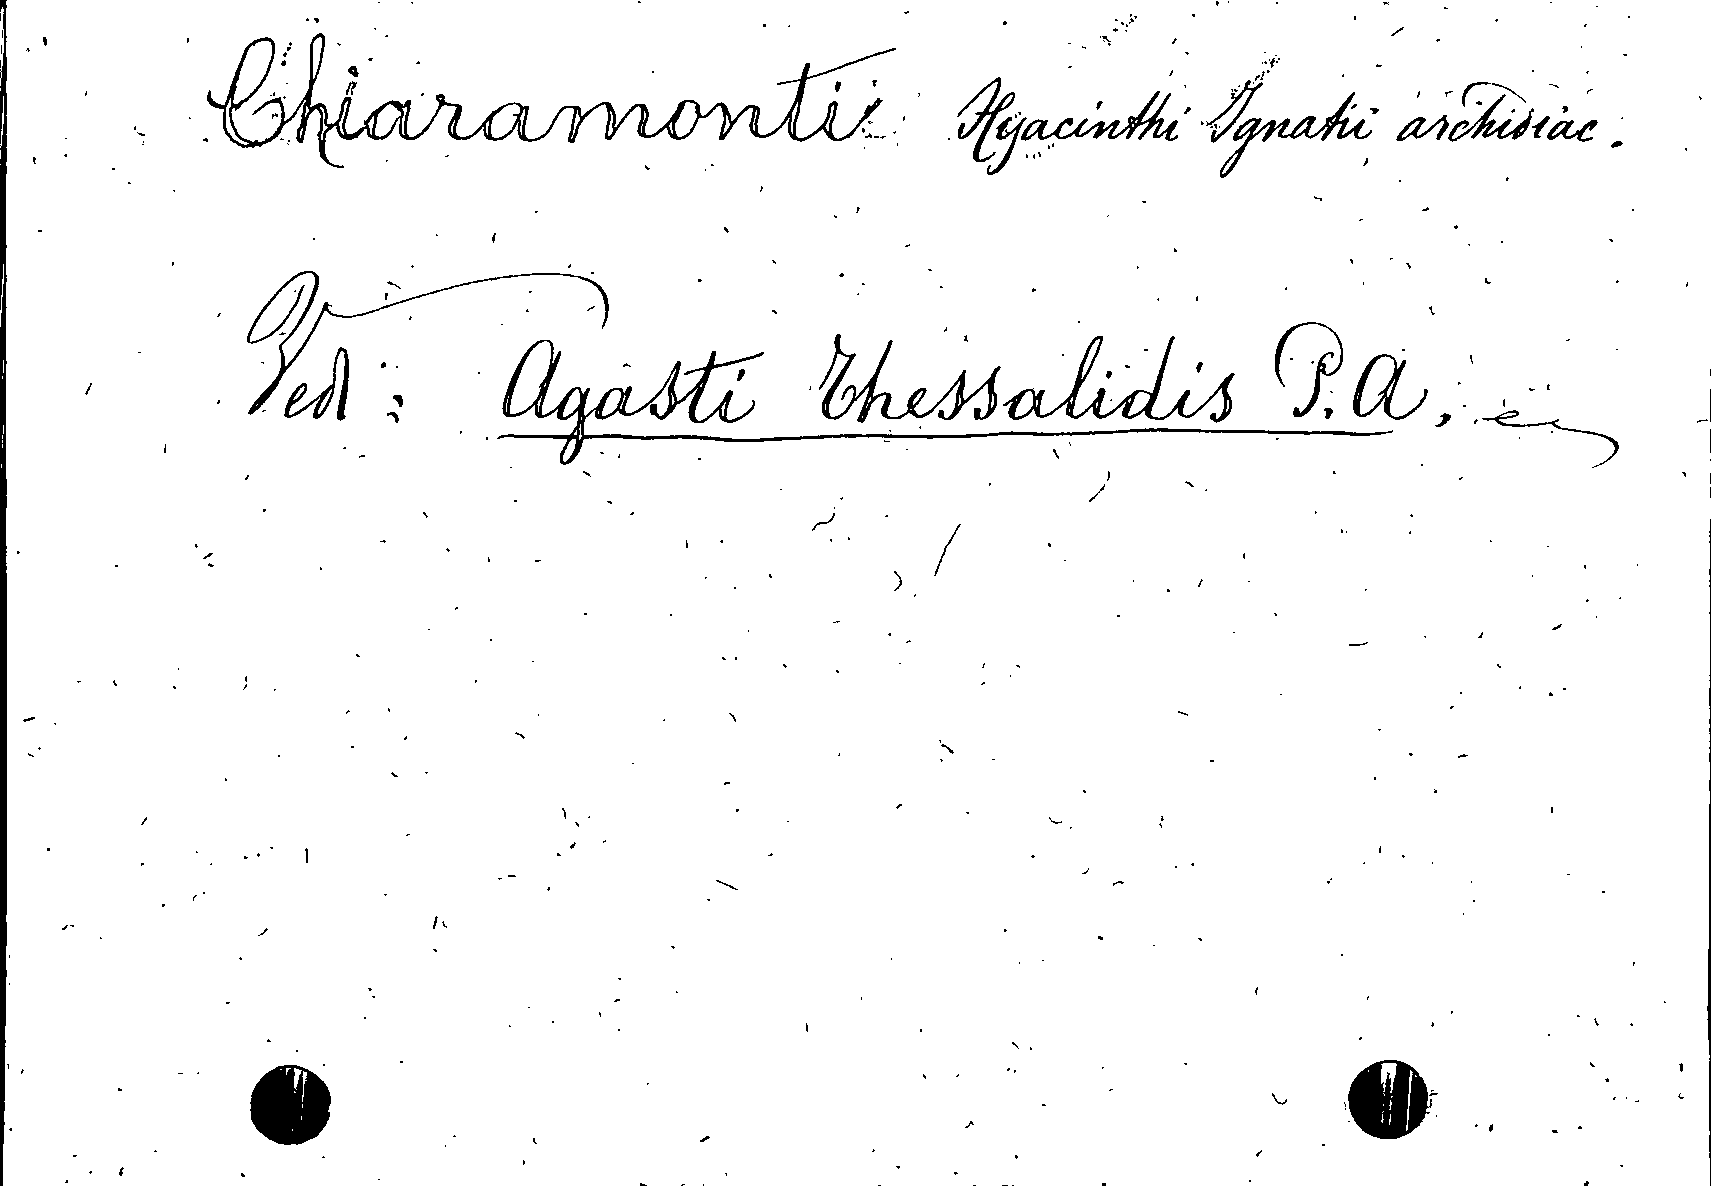 Chiaramonti Hyacinthi Ignatii archidiac.
Ved: Agasti Thessalidis P.A.